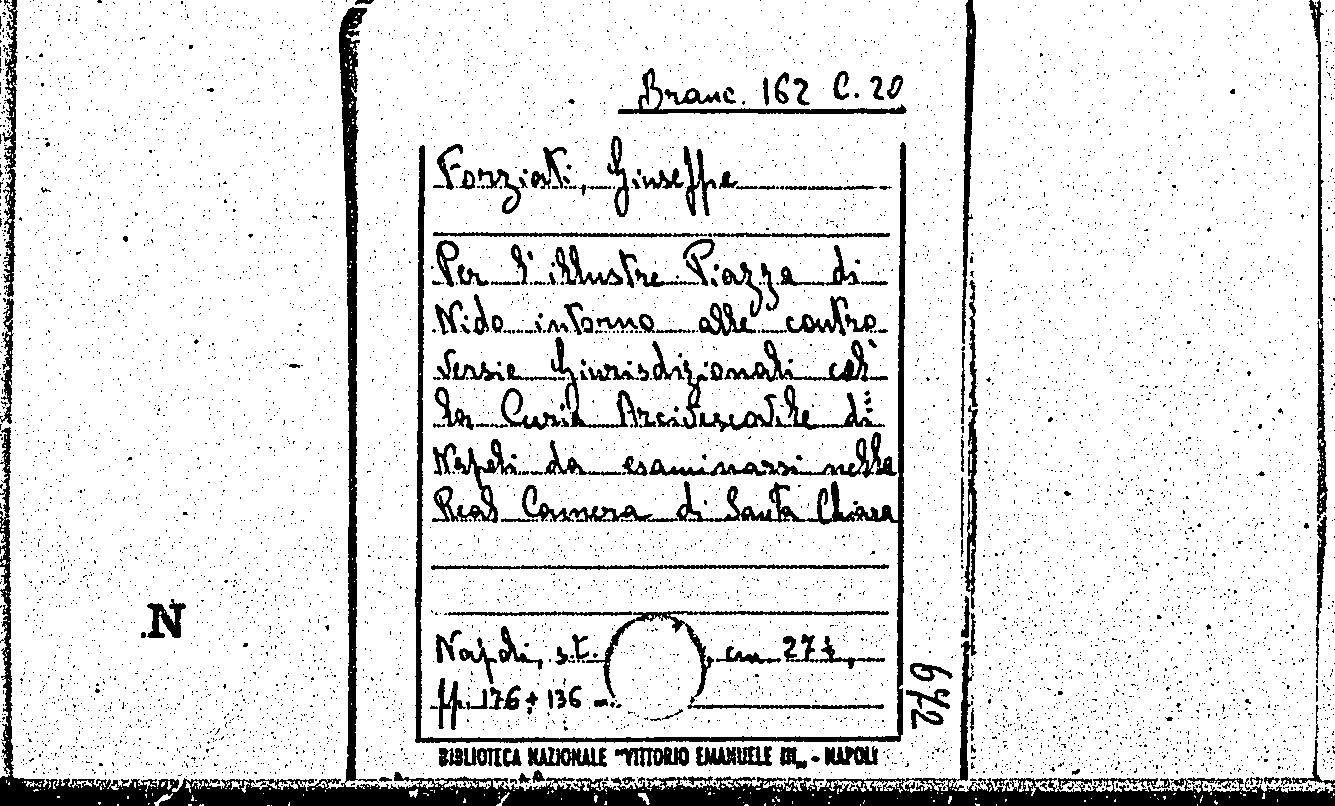 Branc. 162 C. 20
Forziati, Giuseppe
Per l'illustre Piazza di
Nido intorno alle contro
versie Giurisdizionali col
la Curia Arcivescovile di
Napoli da esaminarsi nella
Real Camera di Santa Chiara
.N
Napoli, s.t. , cm 27½,
pp. 176 + 136 -
672
BIBLIOTECA NAZIONALE "VITTORIO EMANUELE III„ - NAPOLI